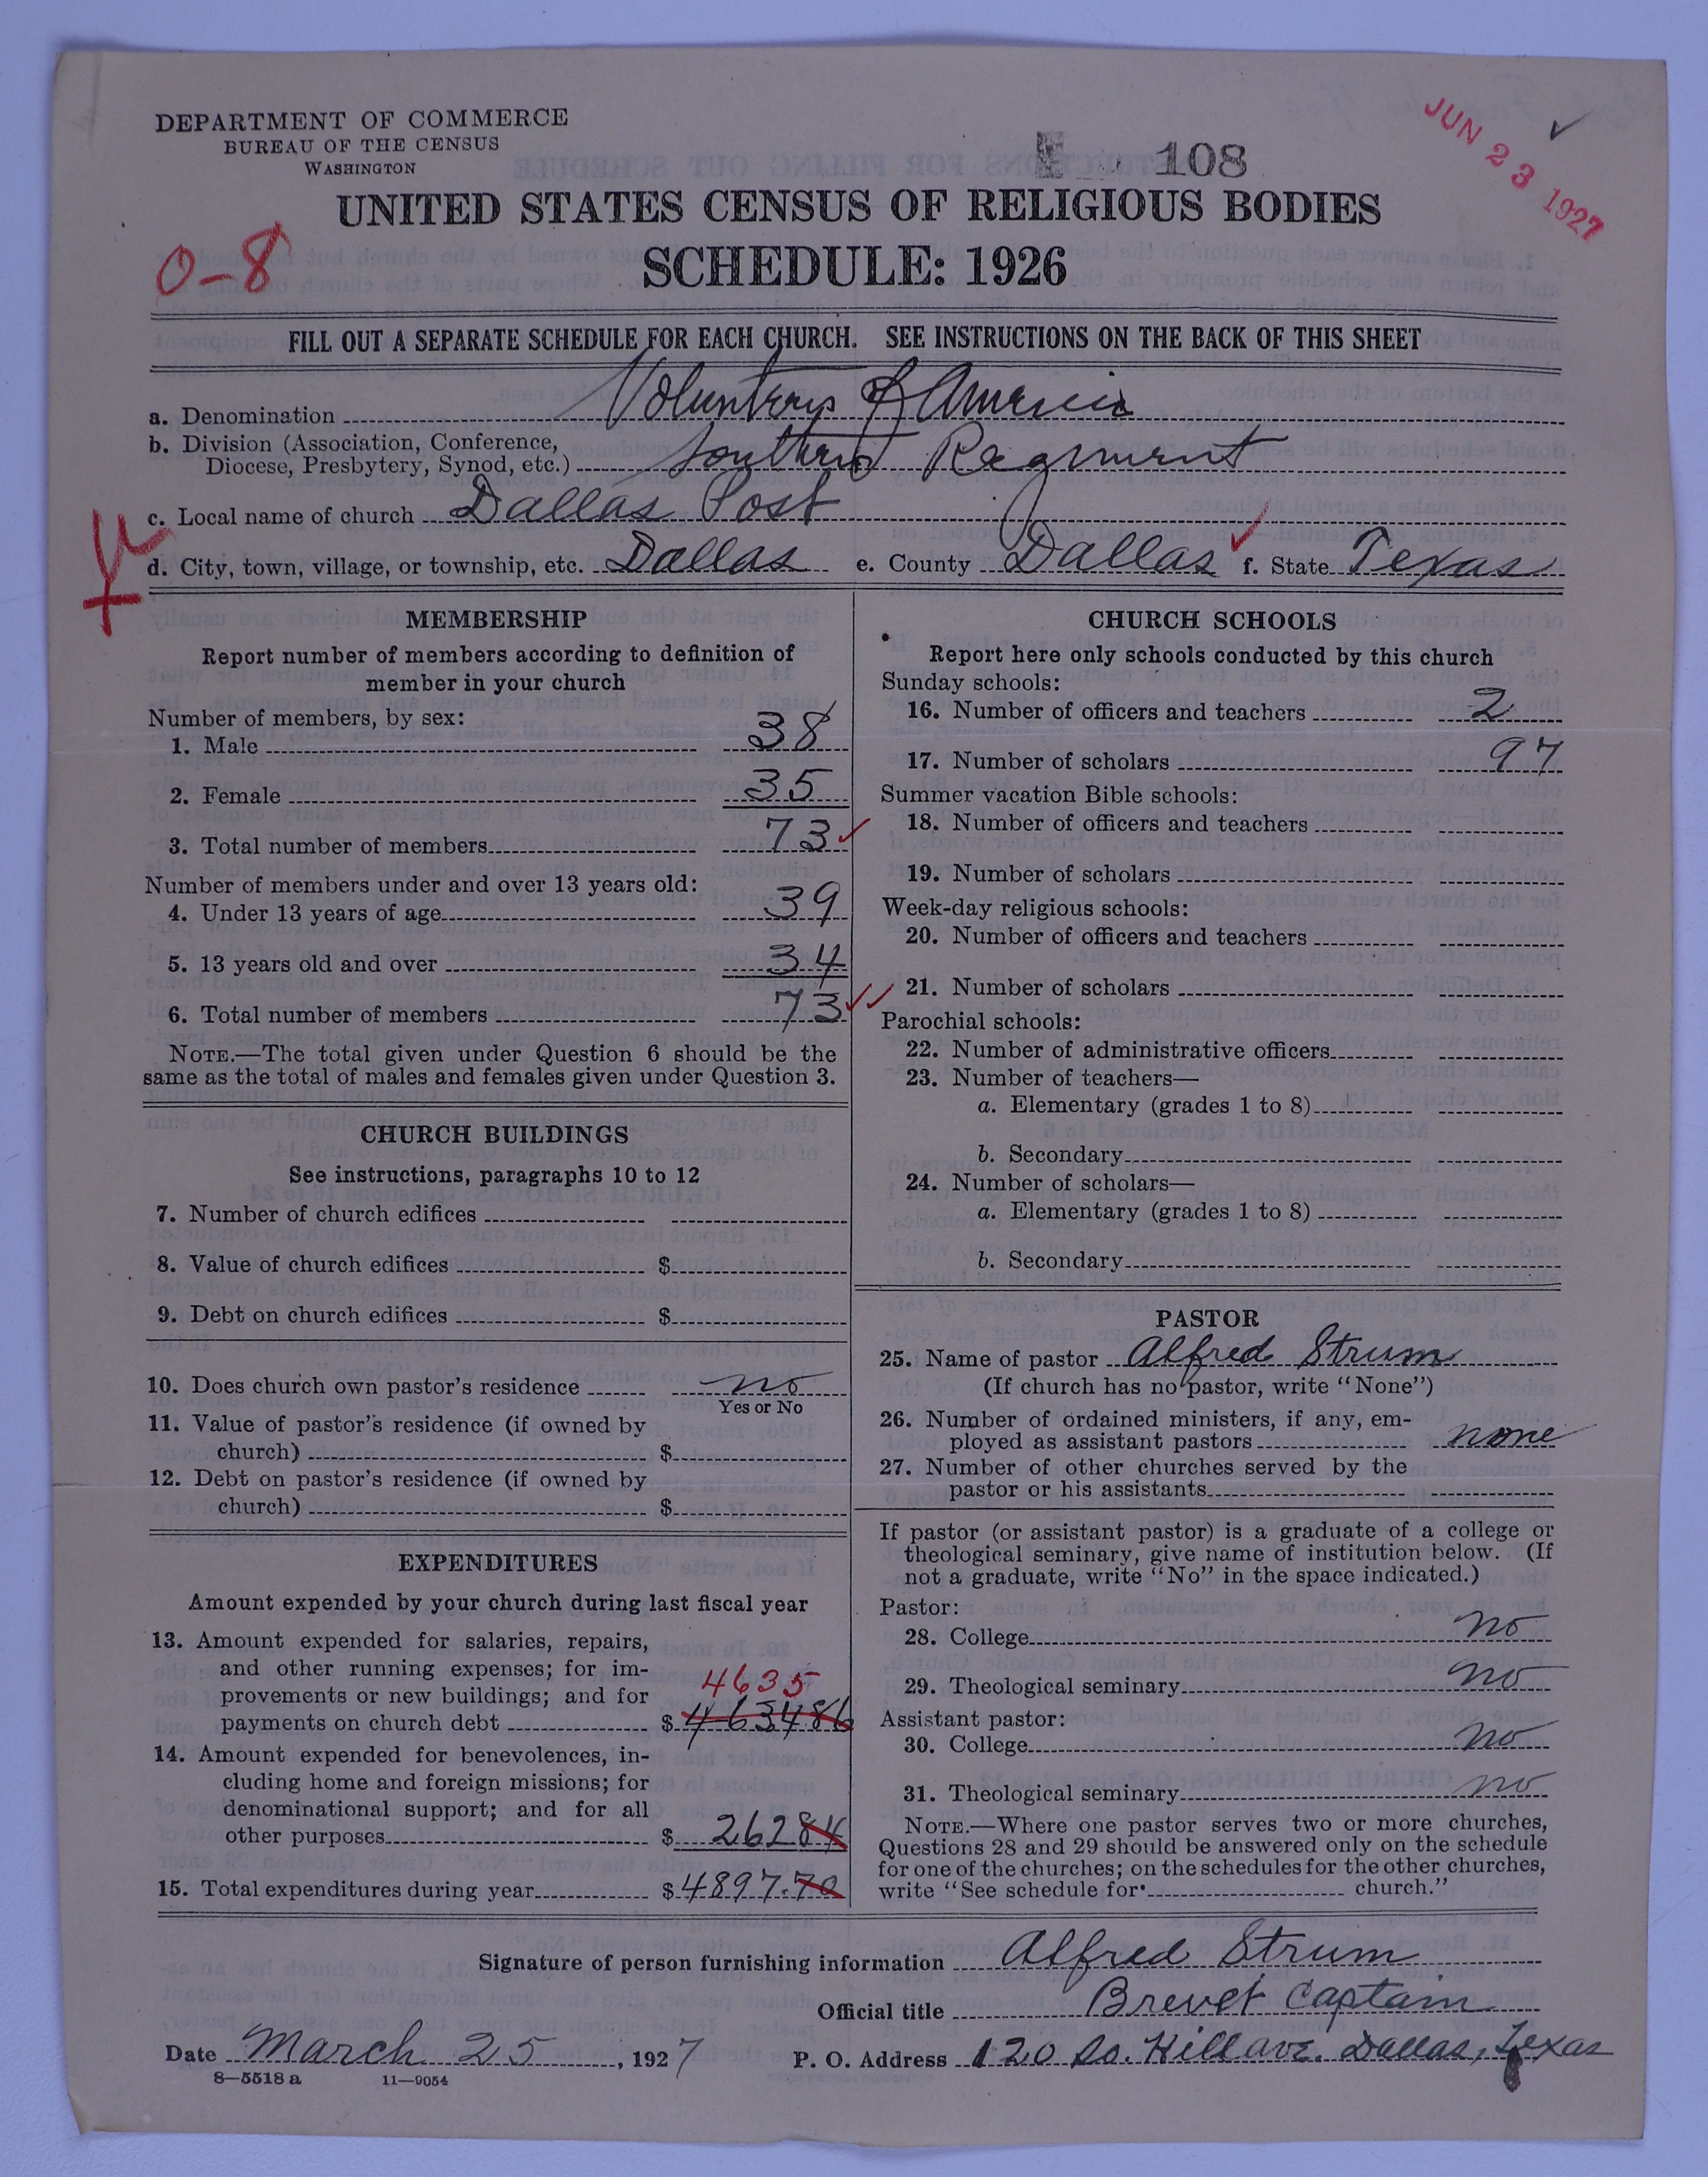 DEPARTMENT OF COMMERCE
BUREAU OF THE CENSUS
WASHINGTON
108
JUN 23 1927
UNITED STATES CENSUS OF RELIGIOUS BODIES
0-8
SCHEDULE: 1926
FILL OUT A SEPARATE SCHEDULE FOR EACH CHURCH. SEE INSTRUCTIONS ON THE BACK OF THIS SHEET
a. Denomination Volunteers of America
b. Division (Association, Conference,
Diocese, Presbytery, Synod, etc.) Southern Regiment
c. Local name of church Dallas Post
d. City, town, village, or township, etc. Dallas e. County Dallas f. State Texas
MEMBERSHIP
Report number of members according to definition of
member in your church
Number of members, by sex:
1. Male 38
2. Female 35
3. Total number of members 73
Number of members under and over 13 years old:
4. Under 13 years of age 39
5. 13 years old and over 34
6. Total number of members 73
NOTE.—The total given under Question 6 should be the
same as the total of males and females given under Question 3.
CHURCH BUILDINGS
See instructions, paragraphs 10 to 12
7. Number of church edifices
8. Value of church edifices $
9. Debt on church edifices $
10. Does church own pastor's residence no
Yes or No
11. Value of pastor's residence (if owned by
church) $
12. Debt on pastor's residence (if owned by
church) $
EXPENDITURES
Amount expended by your church during last fiscal year
13. Amount expended for salaries, repairs,
and other running expenses; for im-
provements or new buildings; and for 4635
payments on church debt $ 4634 86
14. Amount expended for benevolences, in-
cluding home and foreign missions; for
denominational support; and for all
other purposes $ 262 84
15. Total expenditures during year $ 4897.70
CHURCH SCHOOLS
Report here only schools conducted by this church
Sunday schools:
16. Number of officers and teachers 2
17. Number of scholars 97
Summer vacation Bible schools:
18. Number of officers and teachers
19. Number of scholars
Week-day religious schools:
20. Number of officers and teachers
21. Number of scholars
Parochial schools:
22. Number of administrative officers
23. Number of teachers—
a. Elementary (grades 1 to 8)
b. Secondary
24. Number of scholars—
a. Elementary (grades 1 to 8)
b. Secondary
PASTOR
25. Name of pastor Alfred Strum
(If church has no pastor, write "None")
26. Number of ordained ministers, if any, em-
ployed as assistant pastors none
27. Number of other churches served by the
pastor or his assistants
If pastor (or assistant pastor) is a graduate of a college or
theological seminary, give name of institution below. (If
not a graduate, write "No" in the space indicated.)
Pastor:
28. College no
29. Theological seminary no
Assistant pastor:
30. College no
31. Theological seminary no
NOTE.—Where one pastor serves two or more churches,
Questions 28 and 29 should be answered only on the schedule
for one of the churches; on the schedules for the other churches,
write "See schedule for church."
Signature of person furnishing information Alfred Strum
Official title Brevet Captain
Date March 25, 1927 P. O. Address 120 So. Hill ave. Dallas, Texas
8—5518 a 11—9054